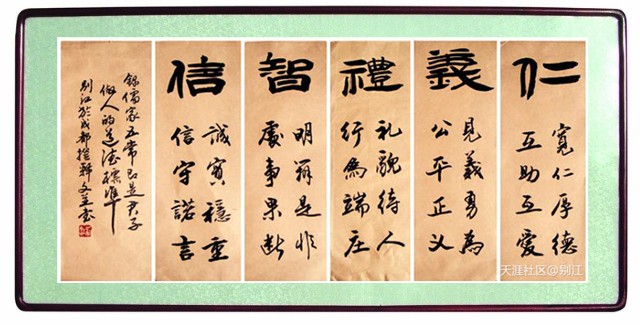 仁
寬仁厚德
互助互愛
義
見義勇為
公平正义
禮
礼貌待人
行為端庄
智
明辨是非
處事果断
信
誠實穩重
信守諾言
錄儒家五常即是君子
做人的道德標準
别江於成都撰释文並書
天涯社区@别江